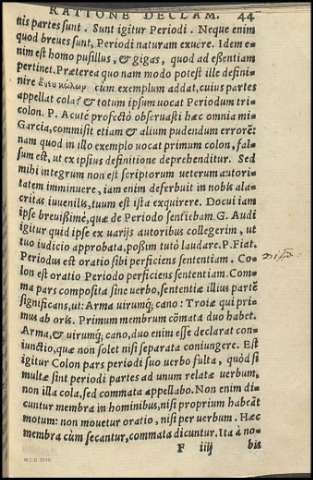 RATIONE DECLAM. 44
nis partes sunt. Sunt igitur Periodi. Neque enim
quod breues sunt, Periodi naturam exuêre. Idem e-
nim est homo pusillus, & gigas, quod ad eßentiam
pertinet. Præterea quo nam modo potest ille defini-
nire cum exemplum addat, cuius partes
appellat cola? & totum ipsum uocat Periodum tri-
colon. P. Acutè profectò obseruasti hæc omnia mi
Garcia, commisit etiam & alium pudendum errorē:
nam quod in illo exemplo uocat primum colon, fal-
sum est, ut ex ipsius definitione deprehenditur. Sed
mihi integrum non est scriptorum ueterum autori-
tatem imminuere, iam enim deferbuit in nobis ala-
critas iuuenilis, tuum est ista exquirere. Docui iam
ipse breuißimè, quæ de Periodo sentiebam G. Audi
igitur quid ipse ex uarijs autoribus collegerim, ut
tuo iudicio approbata, poßim tutò laudare. P. Fiat.
Periodus est oratio sibi perficiens sententiam. Co-
lon est oratio Periodo perficiens sententiam. Com-
ma pars composita sine uerbo, sententiæ illius partē
significans, ut: Arma uirumq́; cano: Troiæ qui pri-
mus ab oris. Primum membrum cōmata duo habet.
Arma, & uirumq́; cano, duo enim esse declarat con-
iunctio, quæ non solet nisi separata coniungere. Est
igitur Colon pars periodi suo uerbo fulta, quòd si
multæ sint periodi partes ad unum relatæ uerbum,
non illa cola, sed commata appellabo. Non enim di-
cuntur membra in hominibus, nisi proprium habeāt
motum: non mouetur oratio, nisi per uerbum. Hæc
membra cùm secantur, commata dicuntur. Ita à no-
F iiij bis